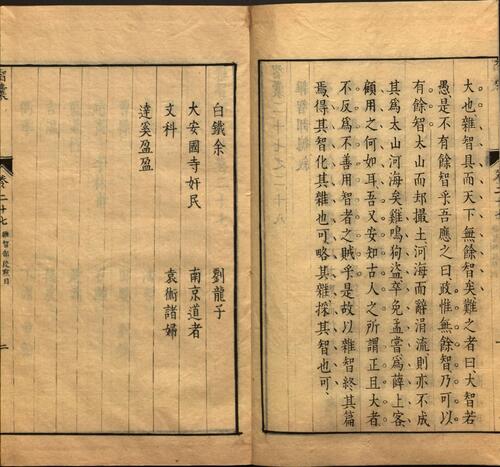 大也雜智具而天下無餘智矣難之者曰大智若
愚是不有餘智乎吾應之曰政惟無餘智乃可以
有餘智太山而却撮土河海而辭涓流則亦不成
其爲太山河海矣雞鳴狗盜卒免孟嘗爲薛上客
顧用之何如耳吾又安知古人之所謂正且大者
不反爲不善用智者之賊乎是故以雜智終其篇
焉得其智化其雜也可略其雜採其智也可
白鐵余 劉龍子
大安國寺奸民 南京道者
文科 袁術諸婦
達奚盈盈
卷二十七 雜智部狡黠目 二